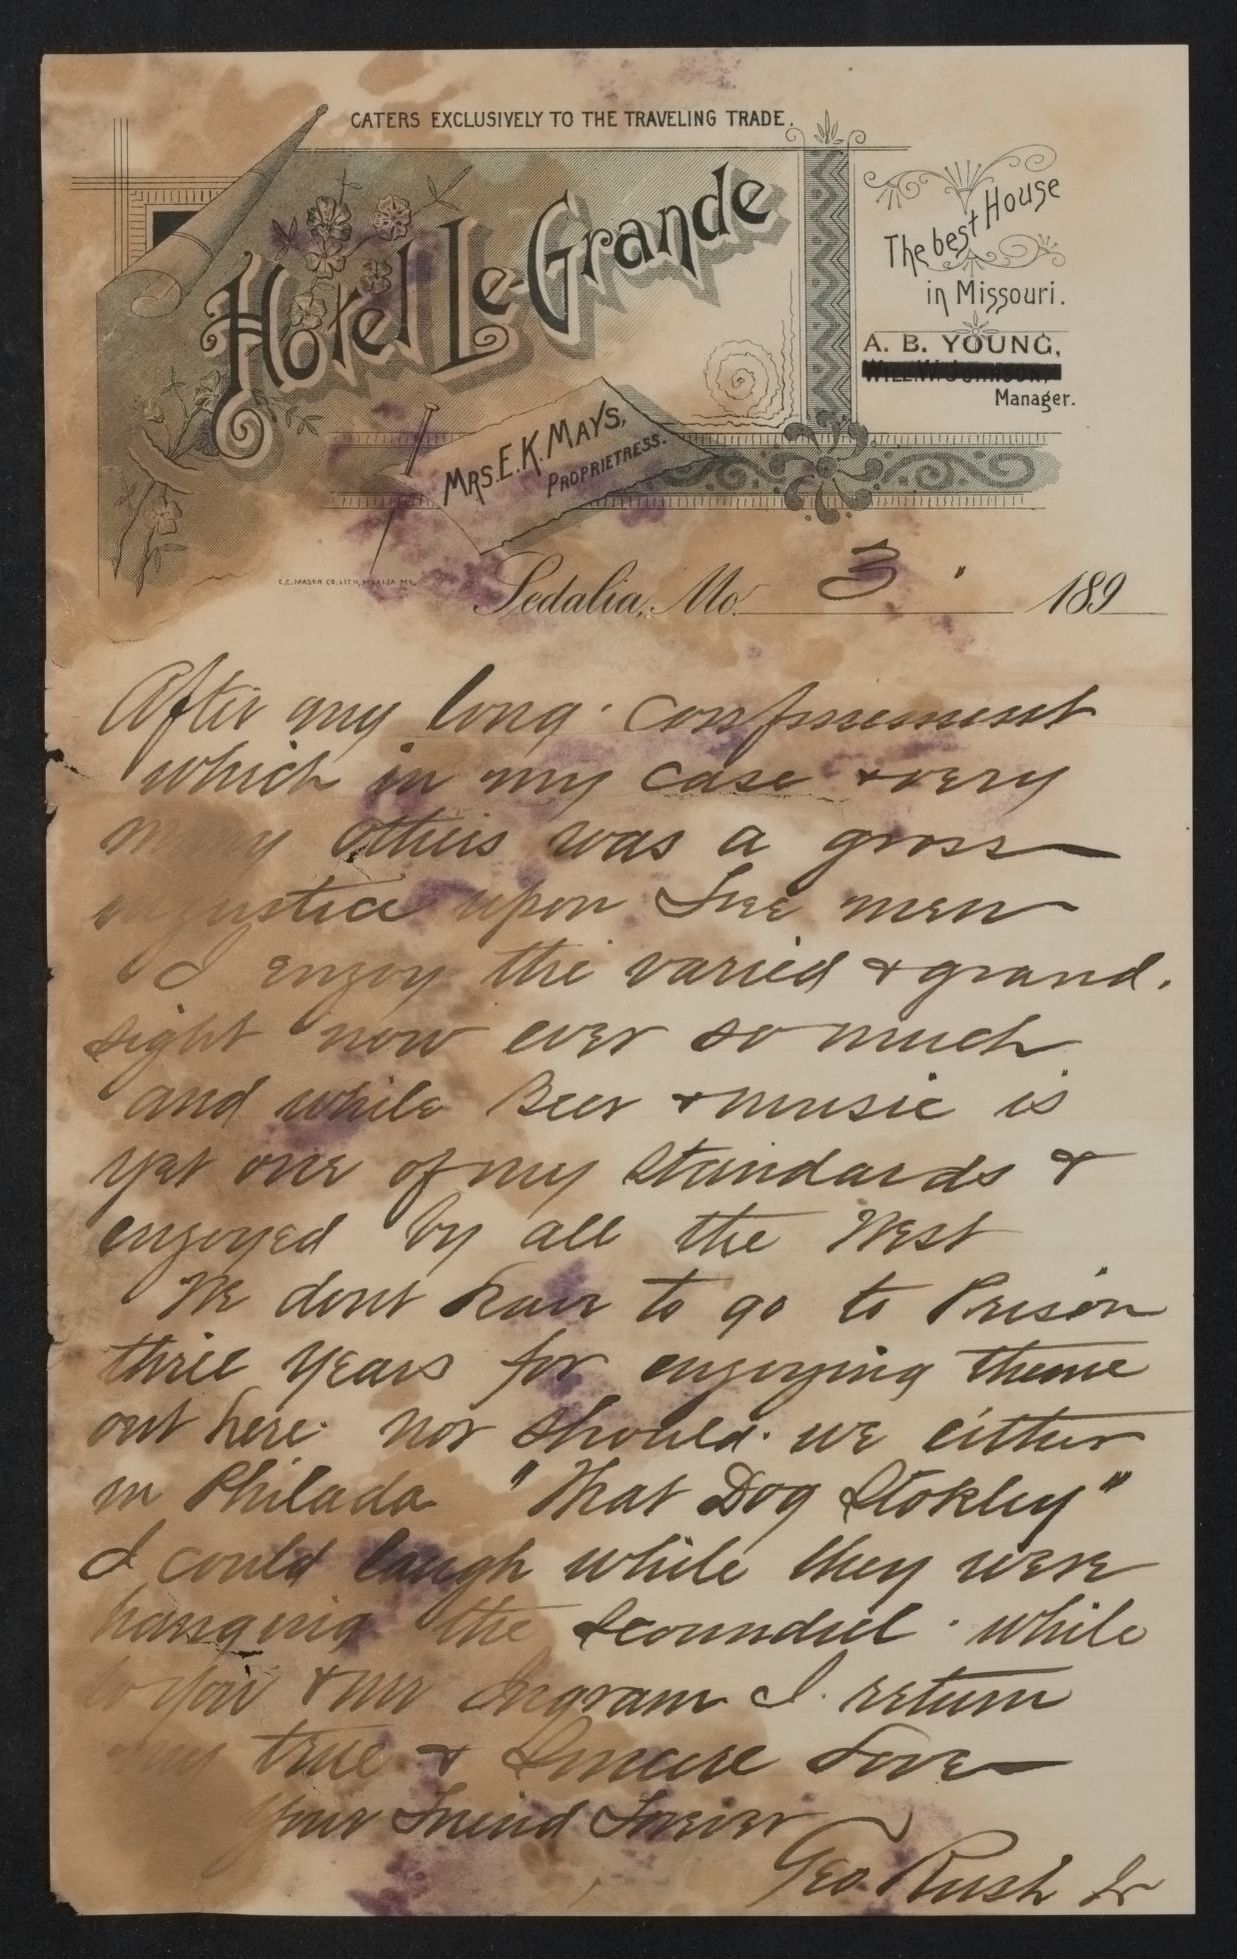 CATERS EXCLUSIVELY TO THE TRAVELING TRADE.
Hotel Le-Grande
The best House
in Missouri.
A. B. YOUNG,
WILL.W. JOHNSON,
Manager.
MRS. E. K. MAYS,
PROPRIETRESS.
E.C. MASON CO. LITH, SEDALIA MO.
Sedalia, Mo. 3 189
After my long confinement
which in my case & very
many others was a gross
injustice upon Free men
I enjoy the varied & grand.
sight now ever so much
and while Beer & music is
yet one of my standards &
enjoyed by all the West
We dont have to go to Prison
three years for enjoying theme
out here. nor should we either
in Philada "That Dog Stokley"
I could laugh while they were
hanging the scoundrel. while
to you & Mr Ingram I. return
my true & Sincere Love
Your Friend Forever
Geo. Rush Jr